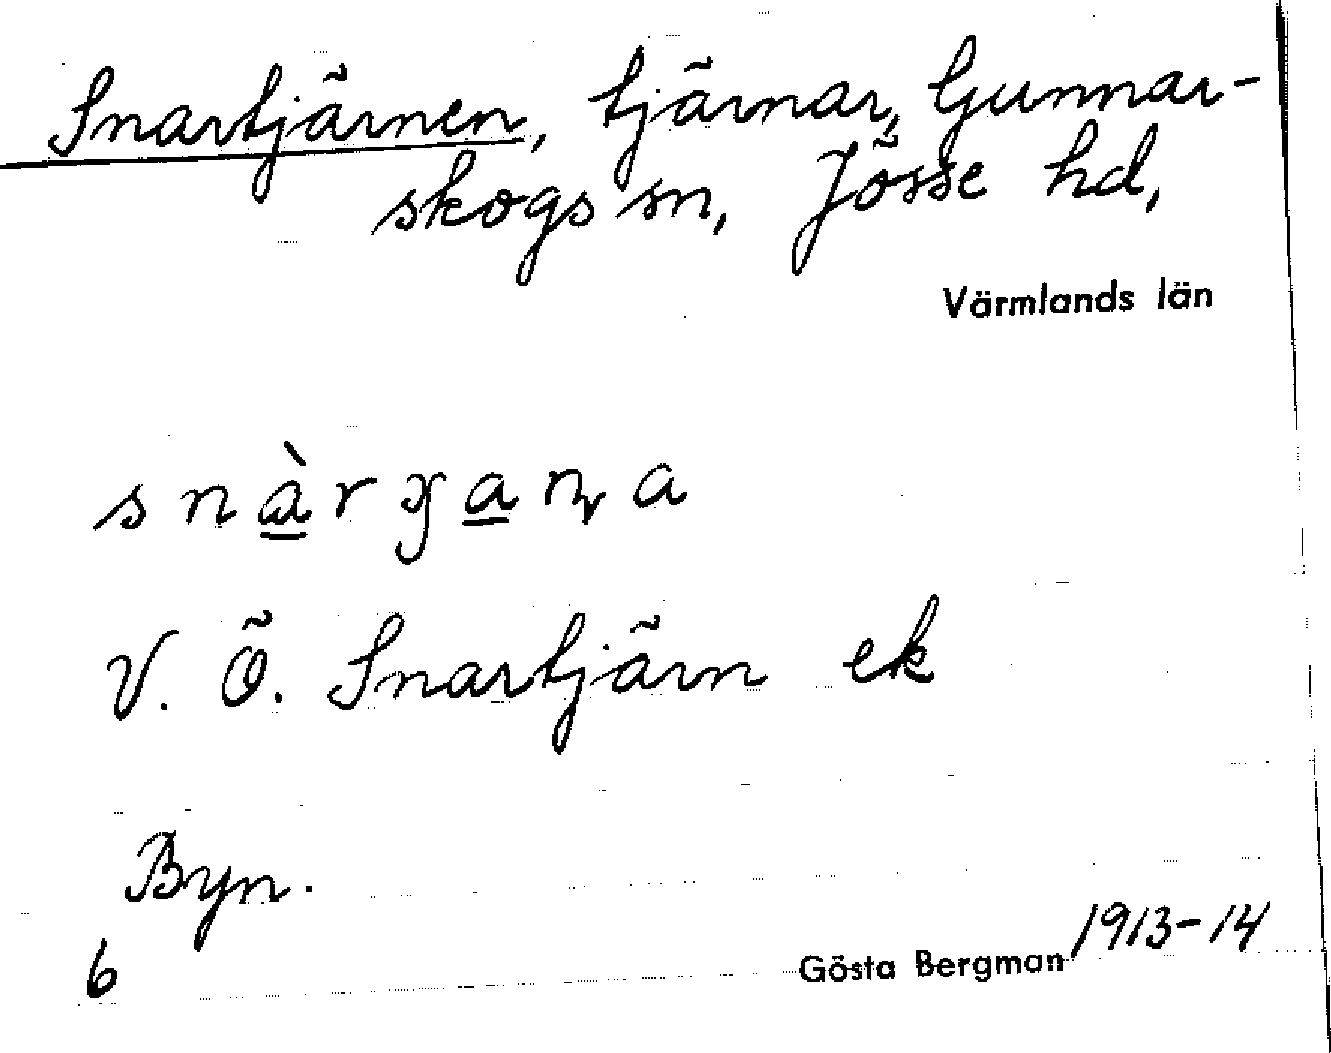 Snartjärnen, tjärnar, Gunnar-
skogs sn, Jösse hd,
Värmlands län
V. Ö. Snartjärn ek
Byn.
6 Gösta Bergman 1913-14